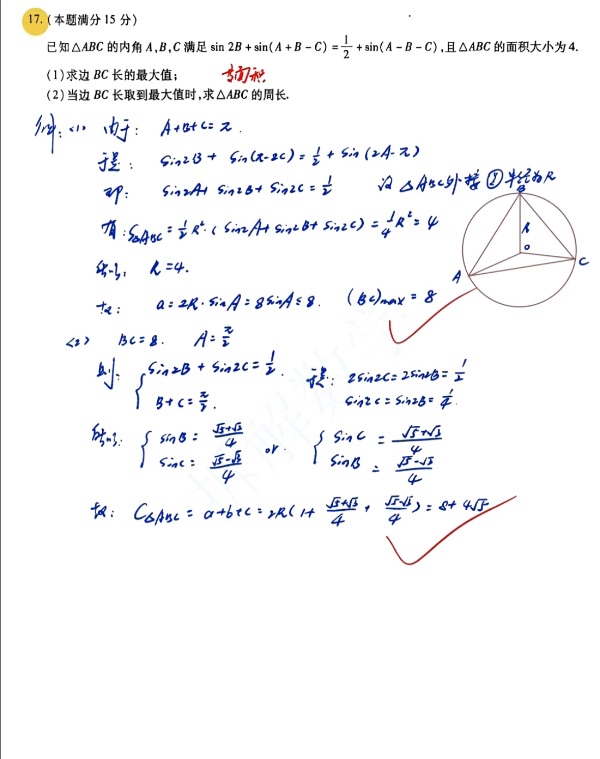 17. (本题满分 15 分)
已知△ABC 的内角 A,B,C 满足 sin 2B + sin(A + B - C) = 1/2 + sin(A - B - C),且△ABC 的面积大小为 4.
(1)求边 BC 长的最大值;
(2)当边 BC 长取到最大值时,求△ABC 的周长.
解: (1) 由于: A+B+C=π.
于是: sin2B + sin(π-2C) = 1/2 + sin(2A-π)
即: sin2A + sin2B + sin2C = 1/2 设 △ABC外接圆半径为R
有: S△ABC = 1/2 R²·(sin2A + sin2B + sin2C) = 1/4 R² = 4
解得: R=4.
故: a = 2R·sinA = 8sinA ≤ 8. (BC)max = 8
B
R
O
A
C
(2) BC=8. A=π/2
则: { sin2B + sin2C = 1/2. B+C = π/2.
于是: 2sin2C = 2sin2B = 1/2
sin2C = sin2B = 1/4.
解得: { sinB = (√5+√3)/4 sinC = (√5-√3)/4 or. { sinC = (√5+√3)/4 sinB = (√5-√3)/4
故: C△ABC = a+b+c = 2R(1+ (√5+√3)/4 + (√5-√3)/4) = 8+4√5